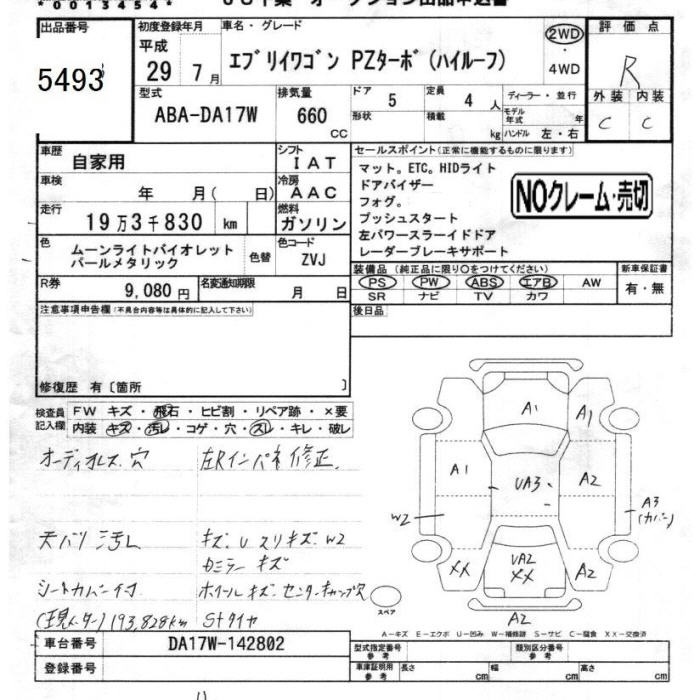 *00134544*
オークション出品申込書
出品番号 初度登録年月 車名・グレード 評価点
5493
平成 29年 7月
エブリイワゴン PZターボ(ハイルーフ)
2WD・4WD
R
外装 内装
C C
型式 ABA-DA17W
排気量 660 CC
ドア 5 定員 4 人
形状 積載 kg
ディーラー・並行
モデル年式 年
ハンドル 左・右
車歴 自家用
シフト IAT
車検 年 月( 日)
冷房 AAC
走行 19万3千830 km
燃料 ガソリン
色 ムーンライトバイオレットパールメタリック
色替
色コード ZVJ
R券 9,080円
名変通知期限 月 日
セールスポイント(正常に機能するものに限ります)
マット。ETC。HIDライト
ドアバイザー
フォグ。
プッシュスタート
左パワースラーイドドア
レーダーブレーキサポート
NOクレーム・売切
装備品(純正品に限り○をつけてください)
PS PW ABS エアB AW
SR ナビ TV カワ
新車保証書
有・無
注意事項申告欄(不具合内容等は具体的に記入して下さい)
後日品
修復歴 有〔箇所 〕
検査員記入欄
FW キズ・飛石・ヒビ割・リペア跡・×要
内装 キズ・汚レ・コゲ・穴・スレ・キレ・破レ
オーディオレス、穴 左Rインパネ修正
天バリ汚レ キズ、U スリキズ、W2
ミラーキズ
シートカバー付 ホイールキズ、センターキャップ欠
(現メーター)193,828km Stタイヤ
A1
A1
A1
UA3
A2
A3
(カバー)
W2
XX
UA2
XX
A2
A2
スペア
A-キズ E-エクボ U-凹み W-補修跡 S-サビ C-腐食 XX-交換済
車台番号 DA17W-142802
登録番号
型式指定番号 参考
類別区分番号 参考
車庫証明用 参考 長さ cm 幅 cm 高さ cm